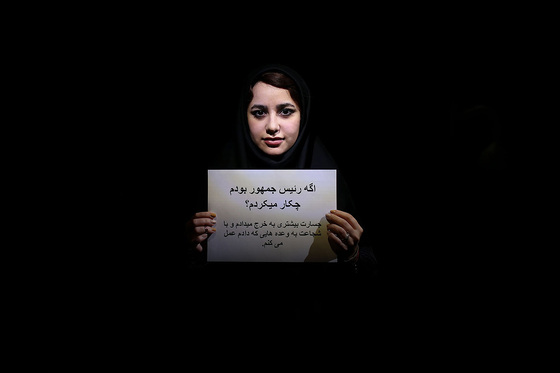 اگه رئیس جمهور بودم
چکار میکردم؟
جسارت بیشتری به خرج میدادم و با
شجاعت به وعده هایی که دادم عمل
می کنم.